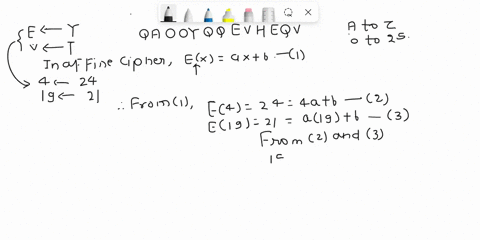 E ← Y
V ← T
QAOOYQQEVHEQV
A to Z
0 to 25
In affine Cipher, E(x) = ax+b —(1)
4 ← 24
19 ← 21
∴ From (1), E(4) = 24 = 4a+b —(2)
E(19) = 21 = a(19)+b —(3)
From (2) and (3)